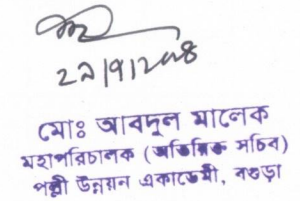 মোঃ আবদুল মালেক
মহাপরিচালক (অতিরিক্ত সচিব)
পল্লী উন্নয়ন একাডেমী, বগুড়া